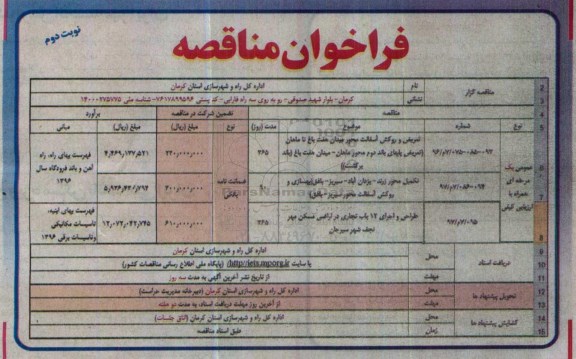 نوبت دوم
فراخوان مناقصه
2 مناقصه گزار نام اداره کل راه و شهرسازی استان کرمان
3 نشانی کرمان- بلوار شهید صدوقی- رو به روی سه راه فارابی- کد پستی ۷۶۱۷۸۹۹۵۹۶- شناسه ملی ۱۴۰۰۰۲۷۵۷۷۵
4 مناقصه تضمین شرکت در مناقصه برآورد
5 نوع شماره موضوع مدت (روز) نوع مبلغ (ریال) مبلغ (ریال) مبانی
6 عمومی یک مرحله ای همراه با ارزیابی کیفی تعریض و روکش آسفالت محور میدان هفت باغ تا ماهان (تعریض پلهای باند دوم محور ماهان- میدان هفت باغ (باند برگشت)) ۳۶۵ ضمانت نامه بانکی ۲۳۰,۰۰۰,۰۰۰ فهرست بهای راه، راه آهن و باند فرودگاه سال ۱۳۹۶
7 تکمیل محور زرند- یزدان آباد - سیریز- بافق (بهسازی و روکش آسفالت محور سیریز- بافق) ۳۰۰,۰۰۰,۰۰۰
8 ۹۶/۰۷/۰۹۵ طراحی و اجرای ۱۲ باب تجاری در اراضی مسکن مهر نجف شهر سیرجان ۳۶۵ ۶۱۰,۰۰۰,۰۰۰ ۱۲,۰۷۲,۰۴۲,۷۴۵ فهرست بهای ابنیه، تاسیسات مکانیکی و تاسیسات برقی ۱۳۹۶
9 دریافت اسناد محل اداره کل راه و شهرسازی استان کرمان
10 یا سایت http://iets.mporg.ir (پایگاه ملی اطلاع رسانی مناقصات کشور)
11 مهلت از تاریخ نشر آخرین آگهی به مدت سه روز
12 تحویل پیشنهاد ها محل اداره کل راه و شهرسازی استان کرمان (دبیرخانه مدیریت حراست)
13 مهلت از آخرین روز مهلت دریافت اسناد، به مدت دو هفته
14 گشایش پیشنهاد ها محل اداره کل راه و شهرسازی استان کرمان (اتاق جلسات)
15 زمان طبق اسناد مناقصه